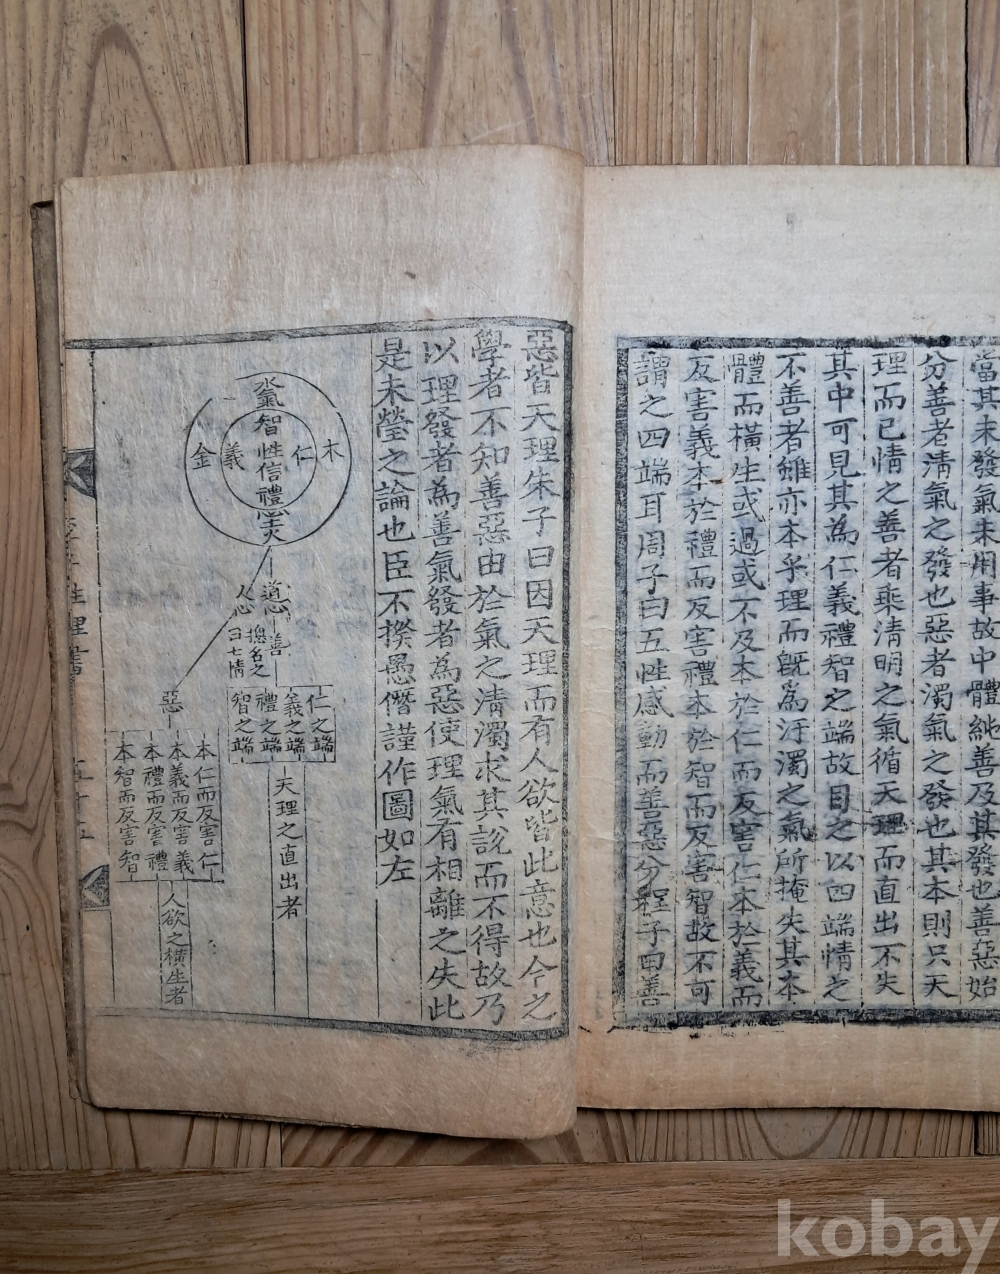 當其未發氣未用事故中體純善及其發也善惡始
分善者淸氣之發也惡者濁氣之發也其本則只天
理而已情之善者乘淸明之氣循天理而直出不失
其中可見其爲仁義禮智之端故目之以四端情之
不善者雖亦本乎理而旣爲汙濁之氣所掩失其本
體而橫生或過或不及本於仁而反害仁本於義而
反害義本於禮而反害禮本於智而反害智故不可
謂之四端耳周子曰五性感動而善惡分程子曰善
惡皆天理朱子曰因天理而有人欲皆此意也今之
學者不知善惡由於氣之淸濁求其說而不得故乃
以理發者爲善氣發者爲惡使理氣有相離之失此
是未瑩之論也臣不揆愚僭謹作圖如左
木
仁
氣智性信禮
義
金
道心
人心
善
摠名之
曰七情
仁之端
義之端
禮之端
智之端
天理之直出者
惡
本仁而反害仁
本義而反害義
本禮而反害禮
本智而反害智
人欲之橫生者
五十五
kobay